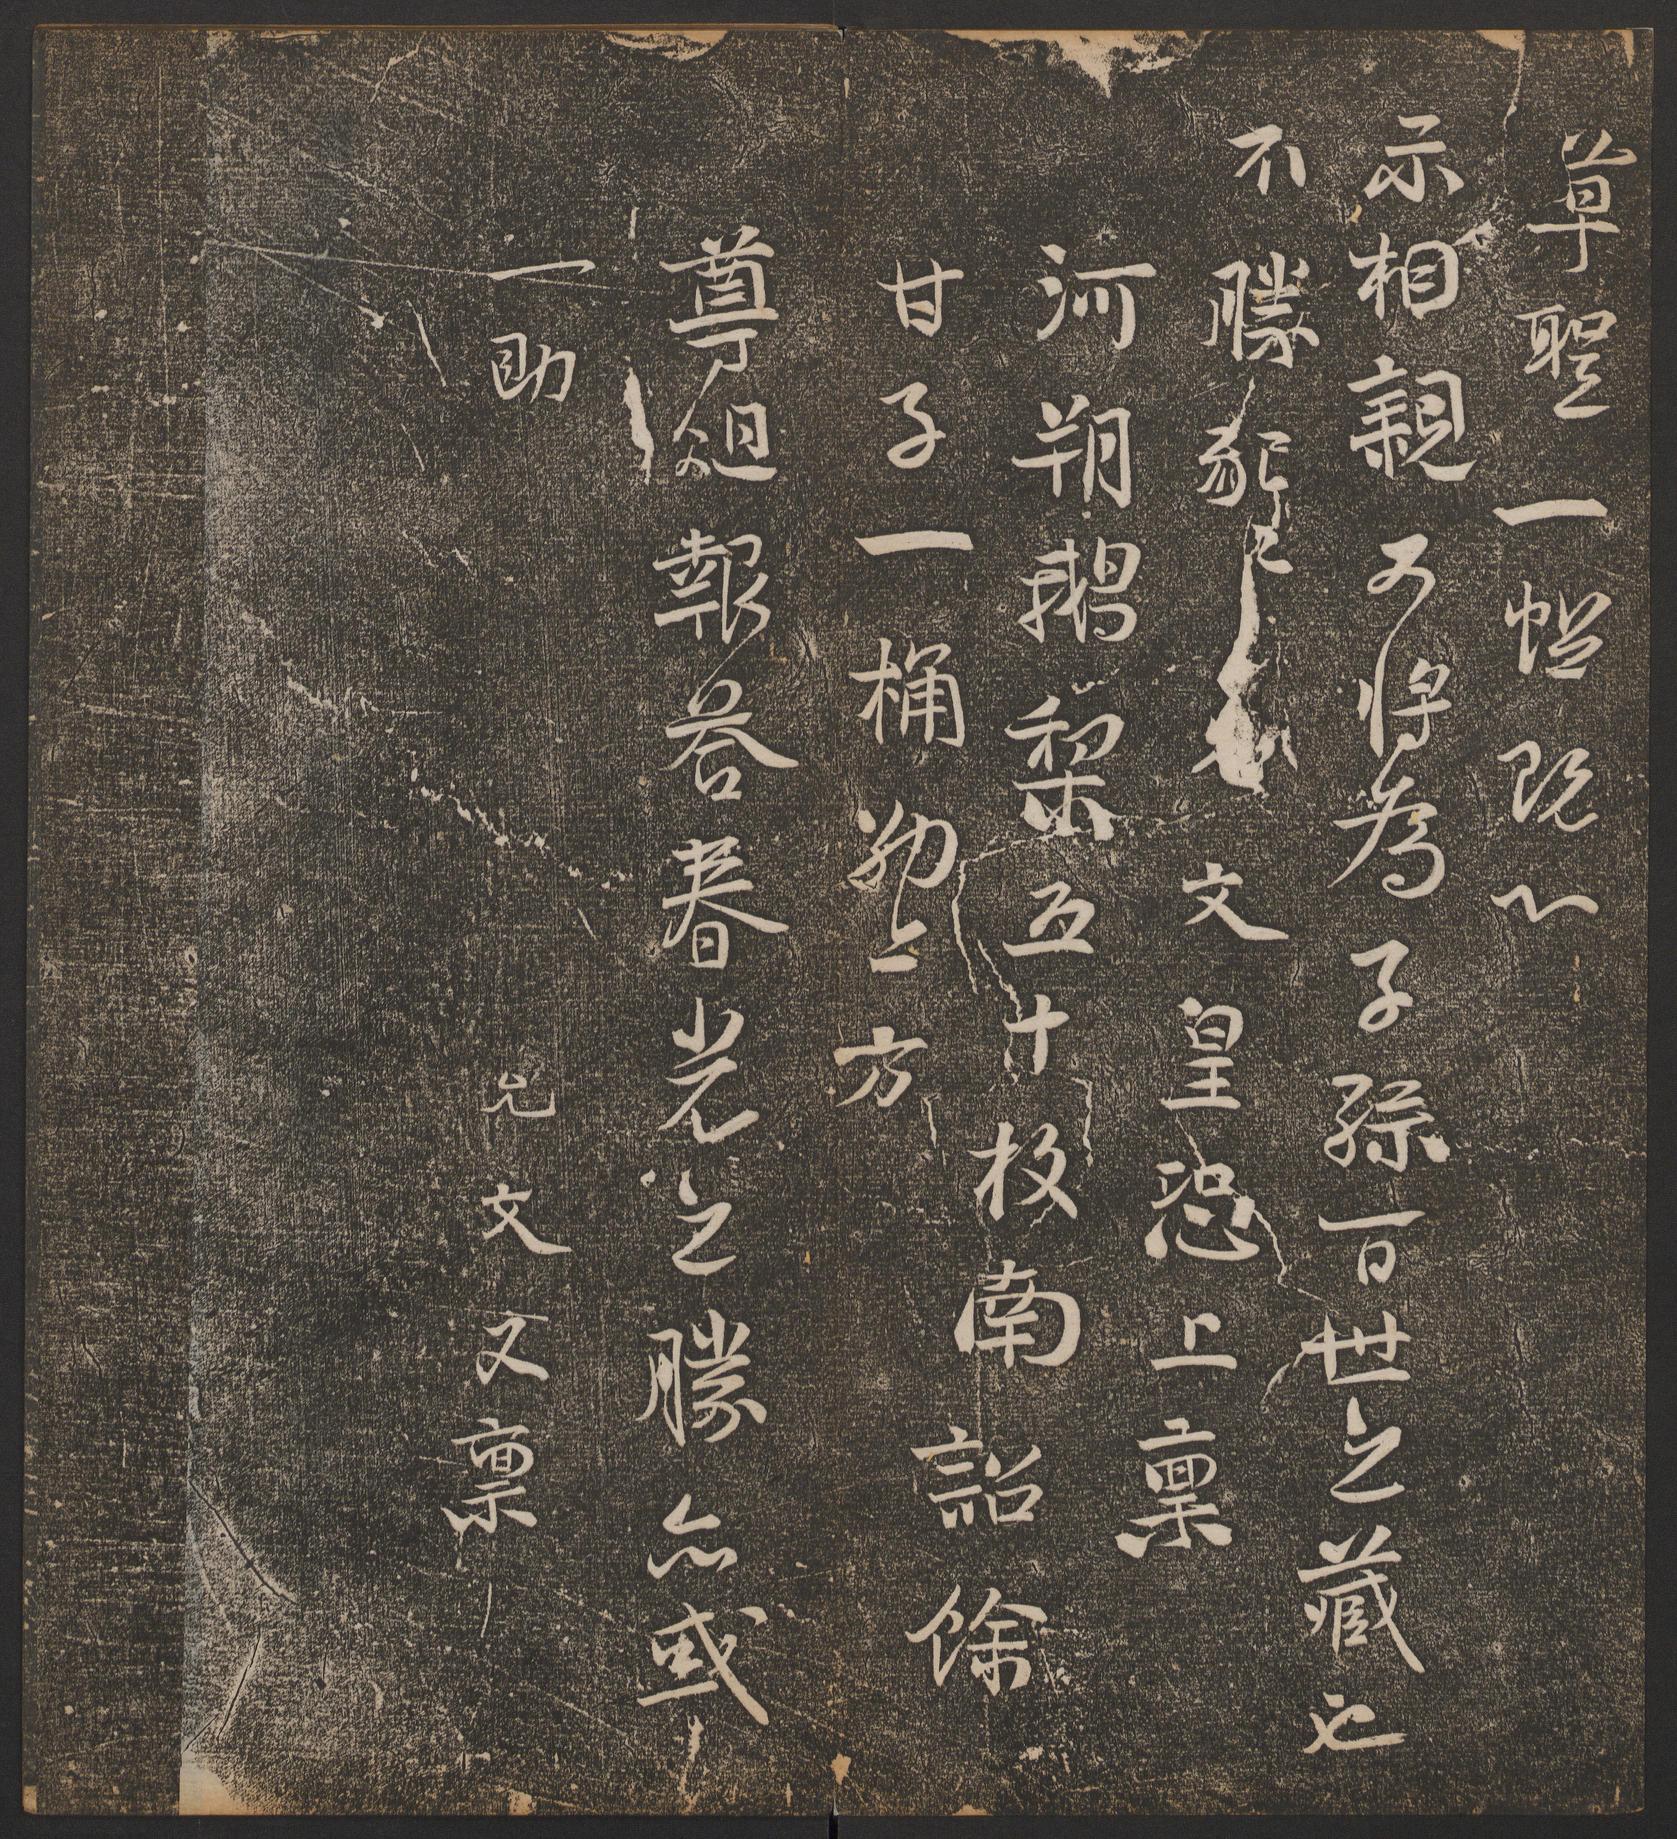 草聖一幅既以
示相親可将為子孫百世之藏也
不勝 文皇恐上稟
河朔鵝梨五十枚南詔餘
甘子一桶 上方
尊俎報答春光之勝亦或
一助 兄文又稟